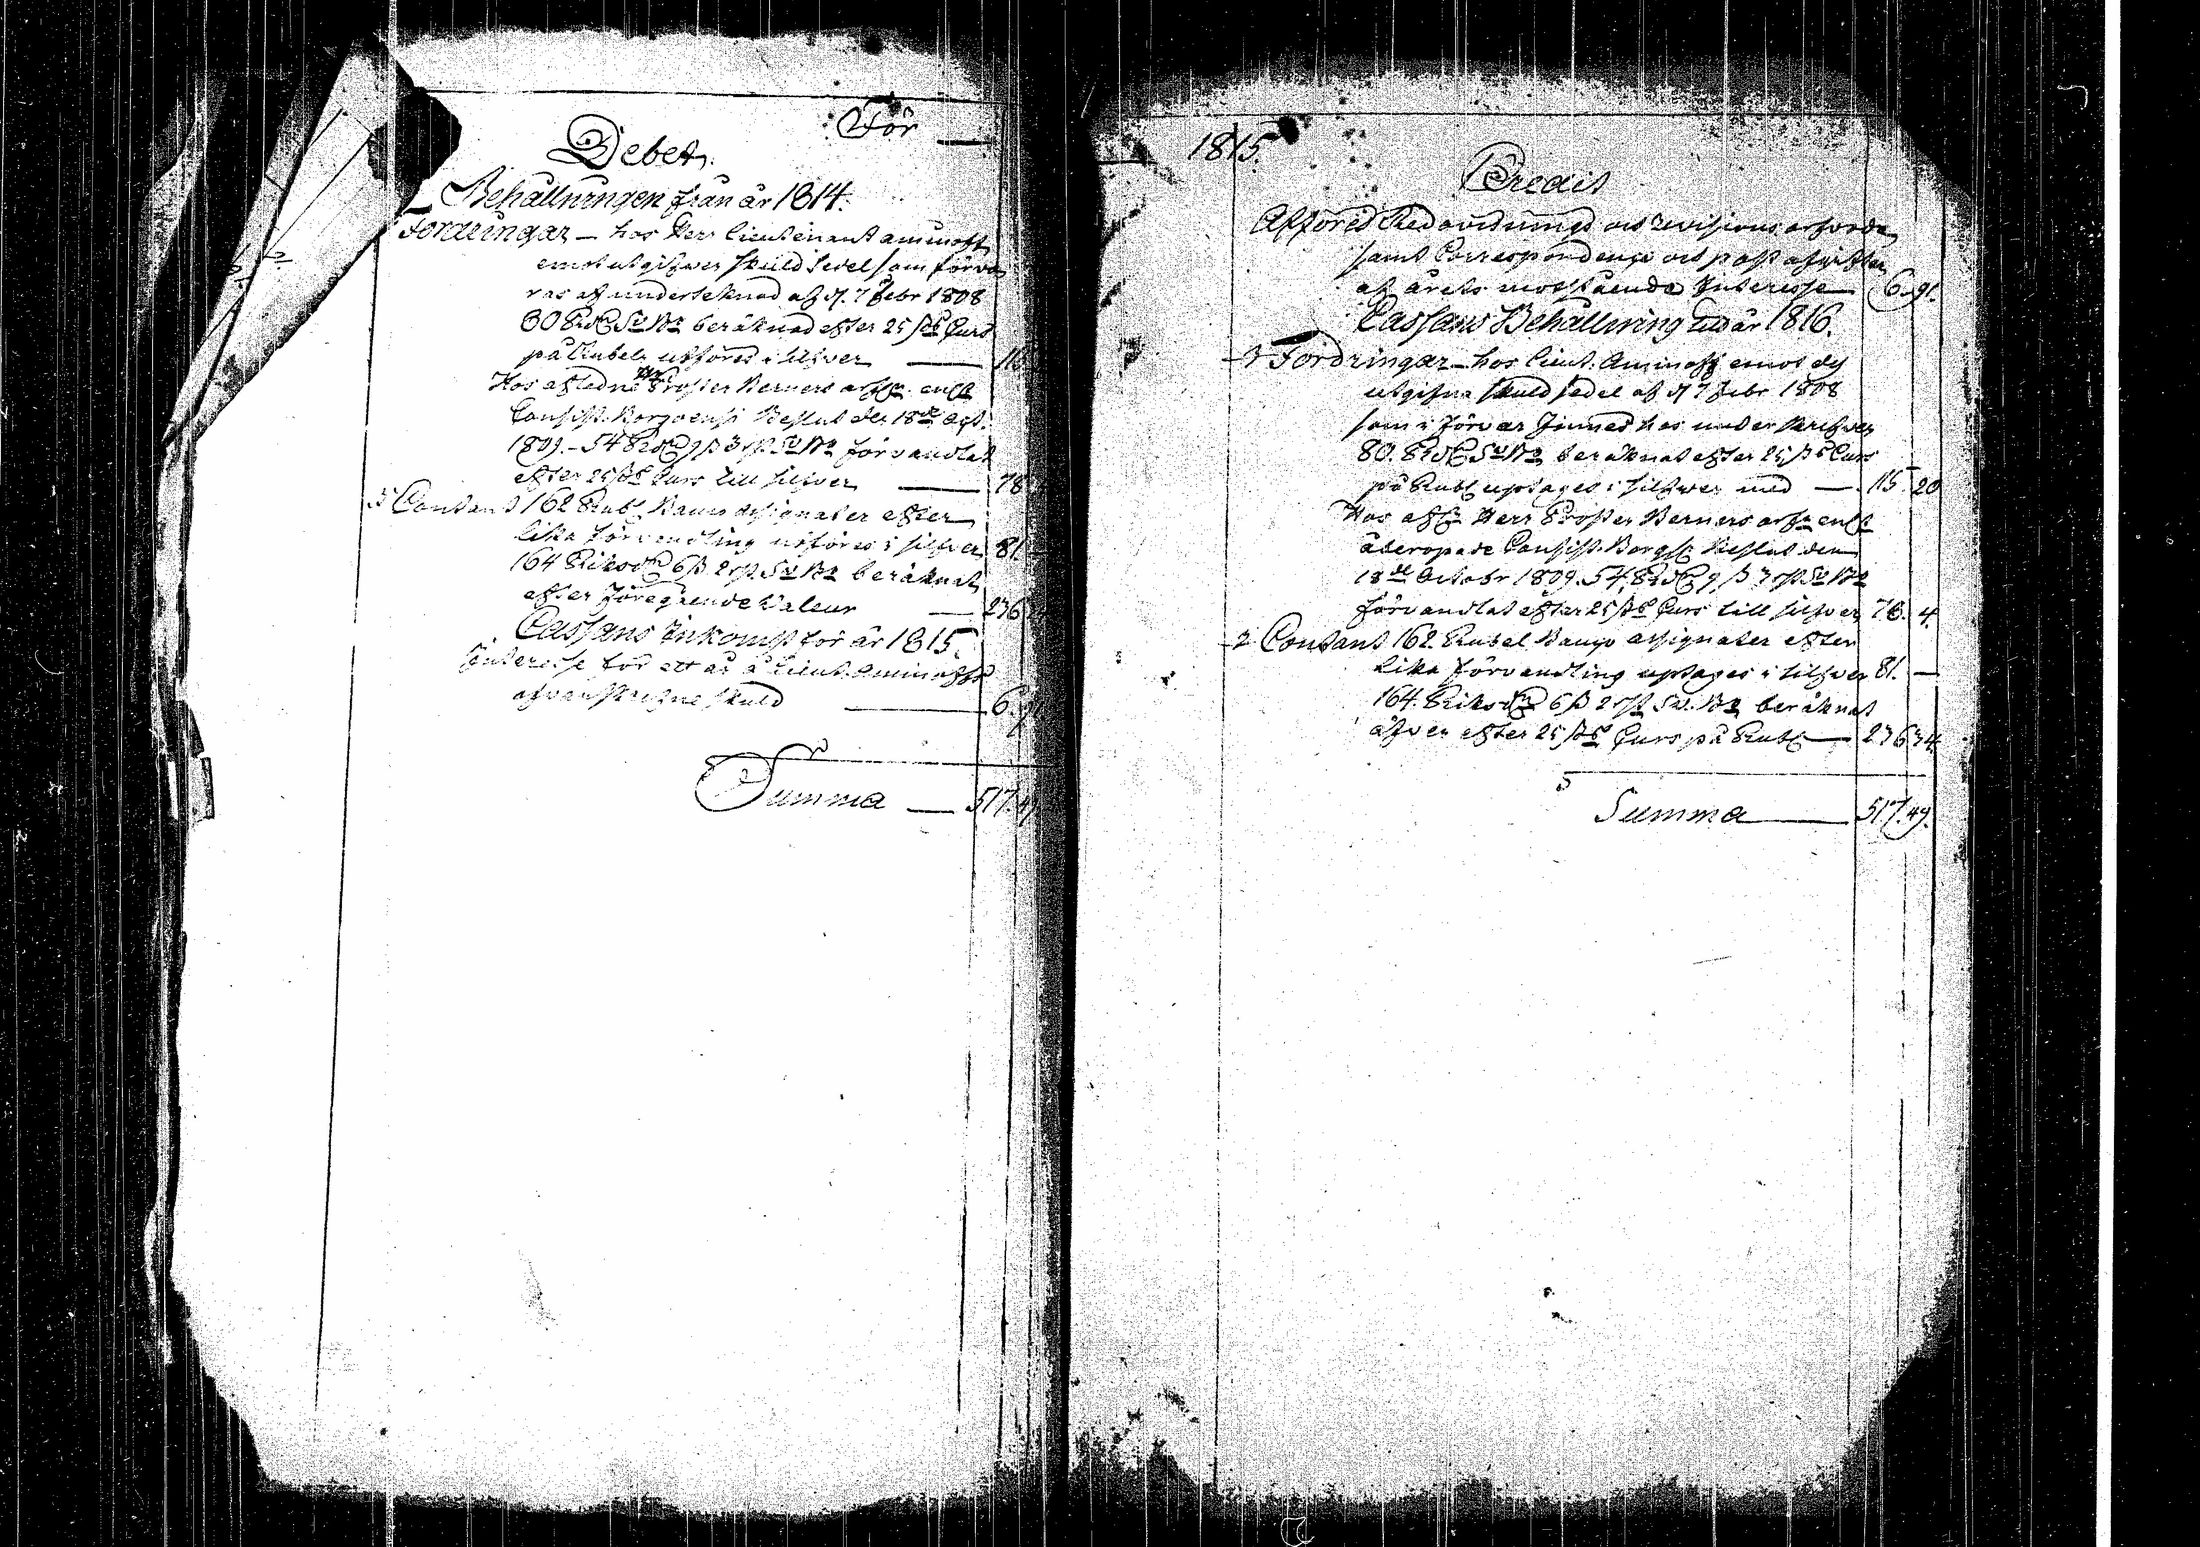 För
Debet,
Behållningen från år 1814.
Fordringar — hos Herr Lieutenant Aminoff
emot utgifwen skuld sedel som förva
ras af underteknad af d. 7 Febr 1808
80 Rd Sv Bo beräknad efter 25 Curs
på Rubeln utföres i silfver — 115
Hos afledne Hr Proster Berners enl
Consist. Borgoensi Beslut den 18de Oct.
1809. — 54 Rd 9 ß 3 rst Sv Bo förvandlat
efter 25 Curs till silfver — 78
Contant 162 Rub Banco assignater efter
lika förvandling utföres i silfver 81
164 Riksd 6 ß 2 rst Sv Bo beräknat
efter föregående Valeur — 236
Cassans Inkomst för år 1815.
Interesse för ett år å Lieut. Aminoffs
ofvanskrefne skuld — 6. 91
Summa — 517. 49
1815.
Credit
Afföres Redovisnings och Revisions arfvode
samt Correspondence och post afgifter
af årets motstående Interesse 6. 91.
Cassans Behållning till år 1816.
Fordringar — hos Lieut. Aminoff emot des
utgifna skuld sedel af d 7 Febr 1808
som i förvar finnes hos under
80. Rd Sv Bo beräknat efter 25 Curs
på Rub uptages i silfwer med — 115 20
Hos Herr Proster Berners enl
åberopade Consist. Borg Beslut den
18de Octobr 1809. 54 Rd 9 ß 3 rst Sv Bo
förvandlat efter 25 Curs till silfver 78. 4.
Contant 162. Rubel Banco assignater efter
lika förvandling uptages i silfver 81. —
164. Riksd 6 ß 2 rst Sv. Bo beräknat
äfven efter 25 Curs på Rub — 236 34.
Summa — 517. 49.